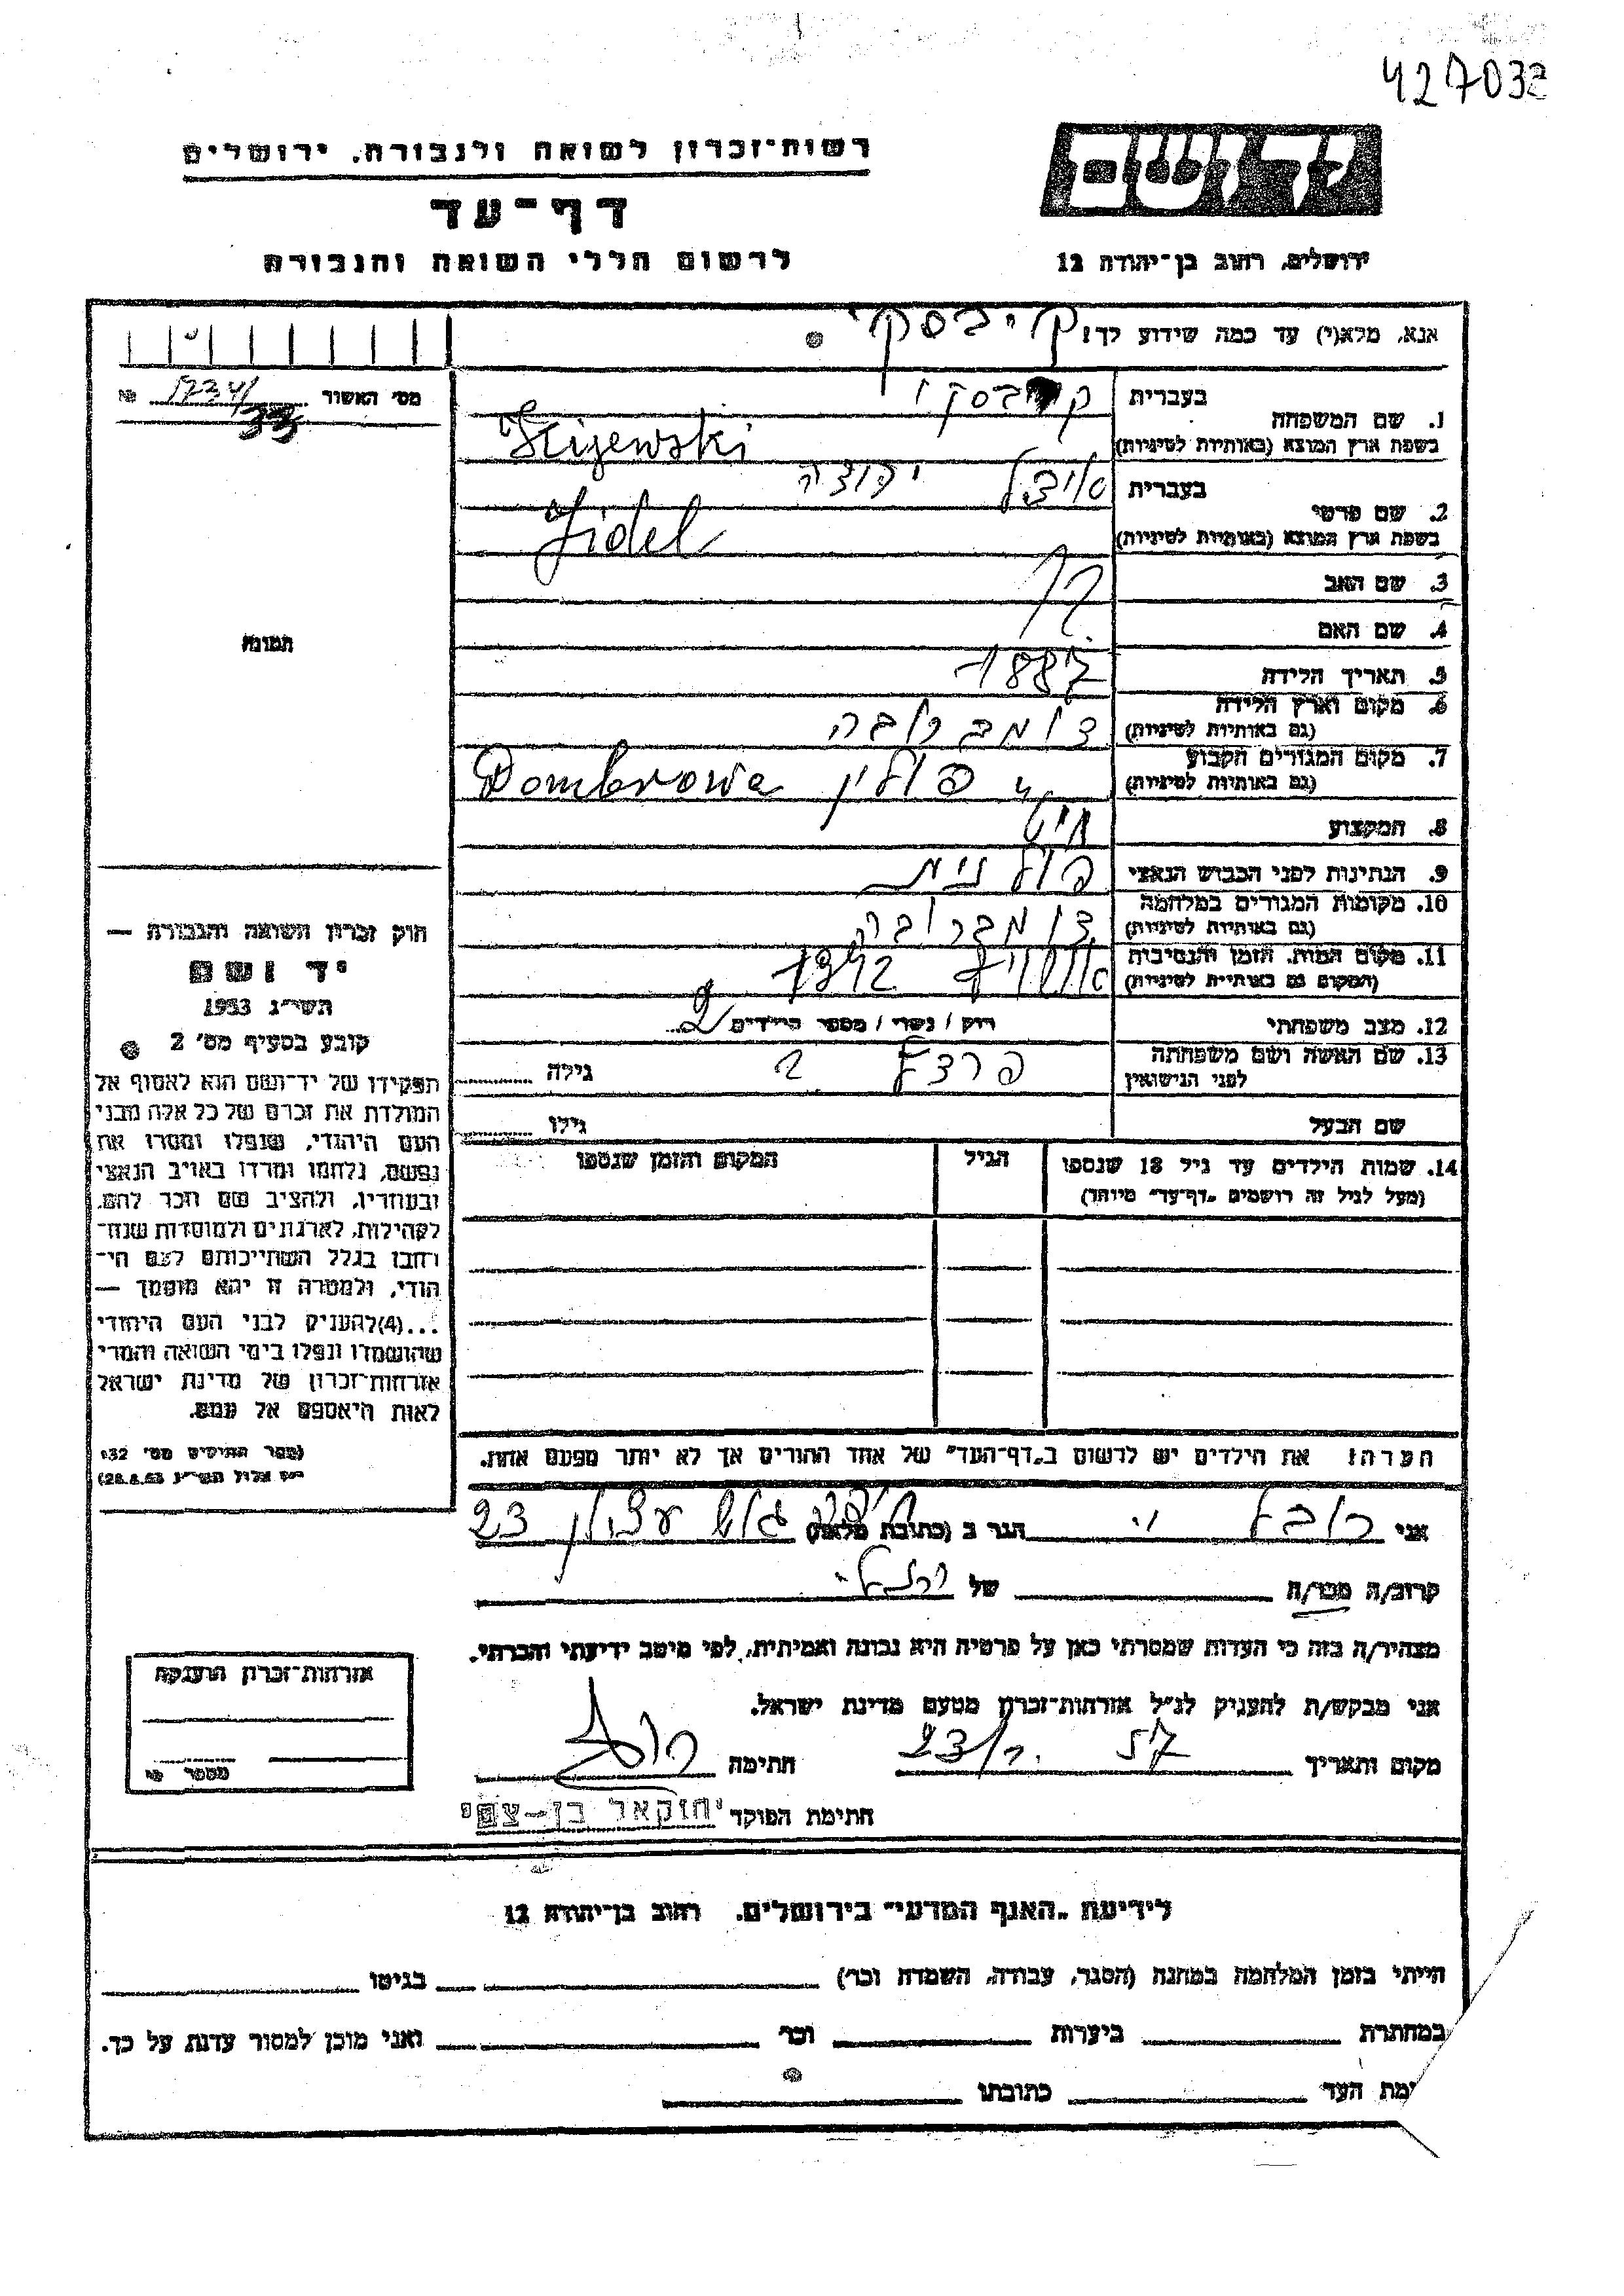 427032
רשות־זכרון לשואה ולגבורה, ירושלים
יד ושם
דף־עד
לרשום חללי השואה והגבורה
ירושלים, רחוב בן־יהודה 12
אנא, מלא(י) עד כמה שידוע לך:
מס׳ האשור
1. שם המשפחה
בעברית
בשפת ארץ המוצא (באותיות לטיניות)
2. שם פרטי
בעברית יהודה
בשפת ארץ המוצא (באותיות לטיניות) Jidel
3. שם האב
4. שם האם
5. תאריך הלידה 1887
6. מקום וארץ הלידה
(גם באותיות לטיניות) דומברובה
7. מקום המגורים הקבוע
(גם באותיות לטיניות) פולין Dombrowa
8. המקצוע חייט
9. הנתינות לפני הכבוש הנאצי פולנית
10. מקומות המגורים במלחמה
(גם באותיות לטיניות) דומברובה
11. מקום המות, הזמן והנסיבות
(המקום גם באותיות לטיניות) אושויץ 1942
12. מצב משפחתי רוק / נשוי / מספר הילדים 2
13. שם האשה ושם משפחתה
לפני הנישואין גילה
שם הבעל גילו
14. שמות הילדים עד גיל 18 שנספו הגיל המקום והזמן שנספו
(מעל לגיל זה רושמים „דף־עד״ מיוחד)
הערה: את הילדים יש לרשום ב„דף־העד״ של אחד ההורים אך לא יותר מפעם אחת.
תמונה
חוק זכרון השואה והגבורה —
יד ושם
תשי״ג 1953
קובע בסעיף מס׳ 2
תפקידו של יד־ושם הוא לאסוף אל
המולדת את זכרם של כל אלה מבני
העם היהודי, שנפלו ומסרו את
נפשם, נלחמו ומרדו באויב הנאצי
ובעוזריו, ולהציב שם וזכר להם,
לקהילות, לארגונים ולמוסדות שנח־
רחבו בגלל השתייכותם לעם הי־
הודי, ולמטרה זו יהא מוסמך —
...(4)להעניק לבני העם היהודי
שהושמדו ונפלו בימי השואה והמרי
אזרחות־זכרון של מדינת ישראל
לאות היאספם אל עמם.
(ספר החוקים מס׳ 132,
י״ז אלול תשי״ג 28.8.53)
אני הגר ב (כתובת מלאה) גוש עציון 23
קרוב/ה מכר/ה של
מצהיר/ה בזה כי העדות שמסרתי כאן על פרטיה היא נכונה ואמיתית, לפי מיטב ידיעתי והכרתי.
אני מבקש/ת להעניק לנ״ל אזרחות־זכרון מטעם מדינת ישראל.
מקום ותאריך חתימה
חתימת הפוקד יחזקאל בן-צפי
אזרחות־זכרון הוענקה
מספר
לידיעת „האגף המדעי״ בירושלים, רחוב בן־יהודה 12
הייתי בזמן המלחמה במחנה (הסגר, עבודה, השמדה וכו׳) בגיטו
במחתרת ביערות וכו׳ ואני מוכן למסור עדות על כך.
ימת העד כתובתו